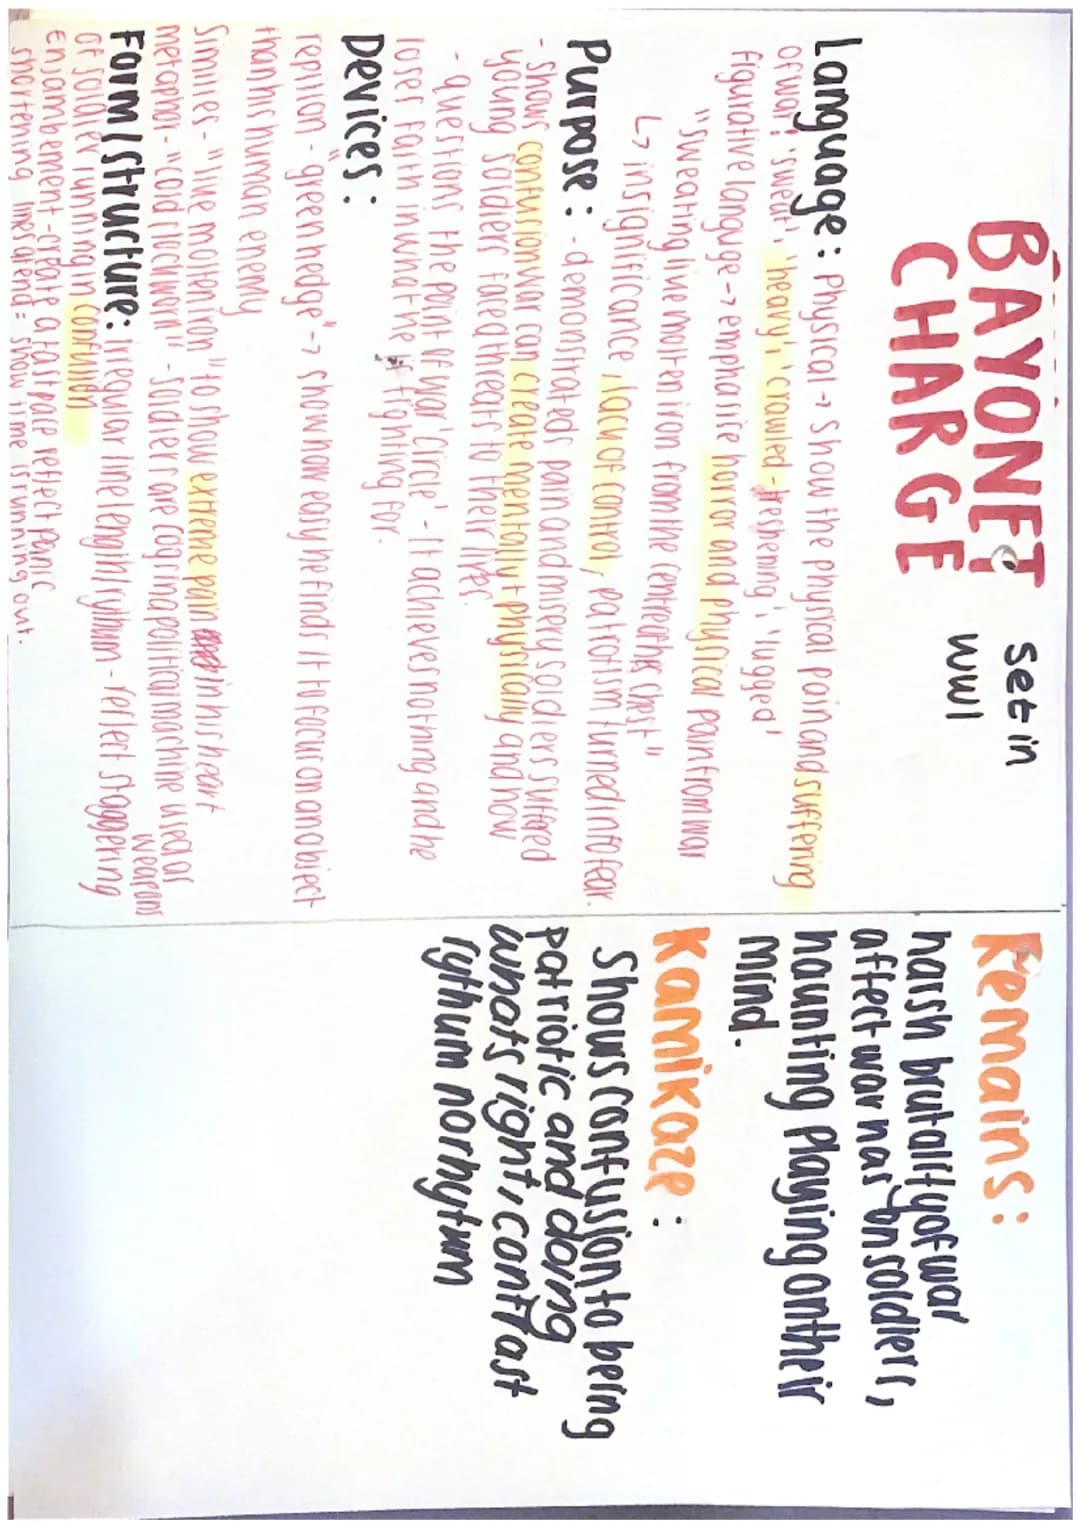 BAYONET
CHARGE
set in
WW1
Language: Physical → Show the physical pain and suffering
of war; 'sweat', 'heavy', 'crawled - freshening', 'lugged'
figurative languge → emphasise horror and physical pain from war
"sweating like molten iron from the centre of his chest"
↳ insignificance, lack of control, patrotism turned into fear.
Purpose: - demonstrates pain and misery soldiers suffred
- shows confusion war can create mentally + physically and how
young soldiers faced threats to their lives.
- questions the point of war 'Circle' - It achieves nothing and he
loses faith in what he is fighting for.
Devices:
repition - "green hedge" → show how easy he finds it to focus on an object
than his human enemy
Similies - "like molten iron" to show extreme pain in his heart
metaphor - "cold clockwork" - soldiers are cogs in a political machine used as
weapons
Form/Structure: irregular line length/rythum - reflect staggering
of soldier running in confusion
Enjambement - create a fast pace reflect panic
shortening lines at end = show time is running out.
Remains:
harsh brutality of war
affect war has on soldiers,
haunting Playing on their
mind.
Kamikaze:
Shows confusion to being
patriotic and doing
whats right, contrast
rythum no rhytum